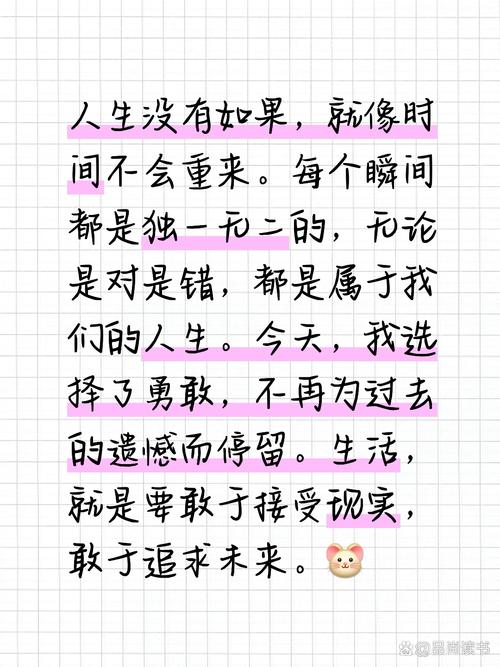 人生没有如果，就像时
间不会重来。每个瞬间
都是独一无二的，无论
是对是错，都是属于我
们的人生。今天，我选
择了勇敢，不再为过去
的遗憾而停留。生活，
就是要敢于接受现实，
敢于追求未来。🐭
@品尚读书